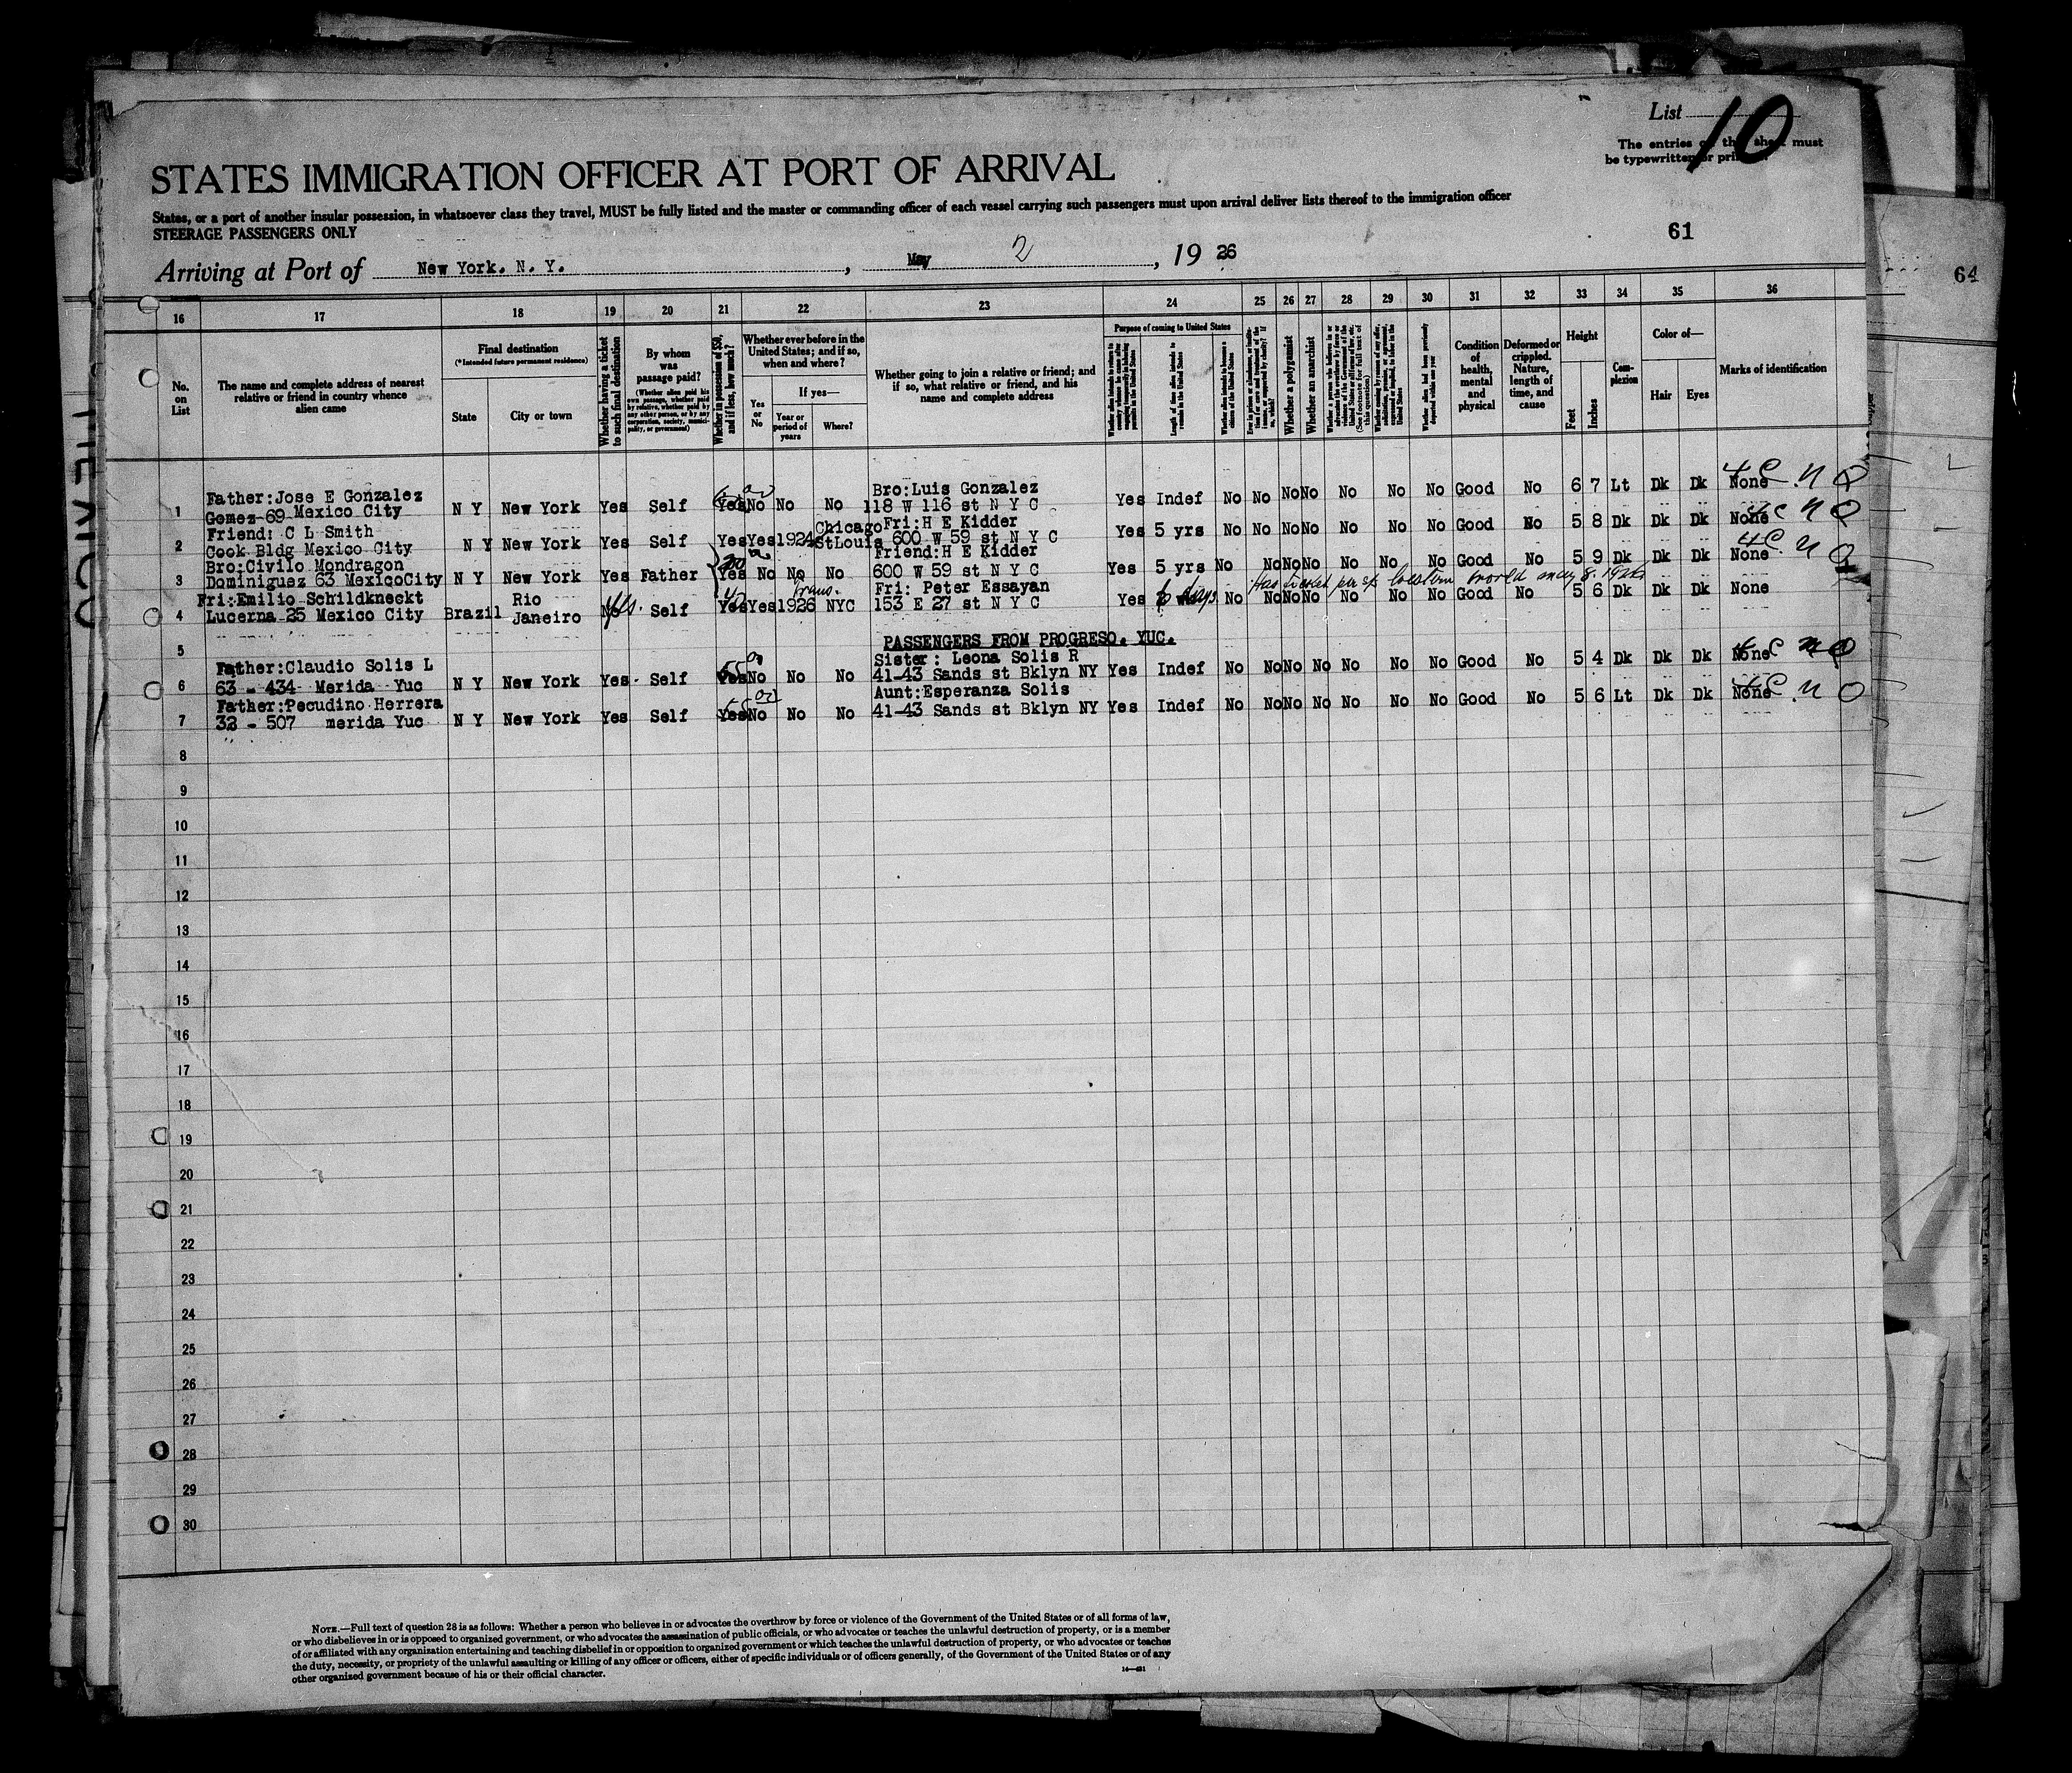 List 10
The entries on this sheet must
be typewritten or printed.
STATES IMMIGRATION OFFICER AT PORT OF ARRIVAL
States, or a port of another insular possession, in whatsoever class they travel, MUST be fully listed and the master or commanding officer of each vessel carrying such passengers must upon arrival deliver lists thereof to the immigration officer
STEERAGE PASSENGERS ONLY
61
64
Arriving at Port of New York. N. Y. , May 2 , 19 26
16 17 18 19 20 21 22 23 24 25 26 27 28 29 30 31 32 33 34 35 36
No. on List
The name and complete address of nearest relative or friend in country whence alien came
Final destination
(*Intended future permanent residence)
State
City or town
Whether having a ticket to such final destination
By whom was passage paid?
(Whether alien paid his own passage, whether paid by relative, whether paid by any other person, or by any corporation, society, municipality, or government)
Whether in possession of $50, and if less, how much?
Whether ever before in the United States; and if so, when and where?
Yes or No
If yes—
Year or period of years
Where?
Whether going to join a relative or friend; and if so, what relative or friend, and his name and complete address
Purpose of coming to United States
Length of time alien intends to remain in the United States
Whether alien intends to become a citizen of the United States
Whether a polygamist
Whether an anarchist
Condition of health, mental and physical
Deformed or crippled. Nature, length of time, and cause
Height
Feet
Inches
Complexion
Color of—
Hair
Eyes
Marks of identification
Father:Jose E Gonzalez Bro:Luis Gonzalez
1 Gomez-69 Mexico City N Y New York Yes Self Yes No No No 118 W 116 st N Y C Yes Indef No No No No No No No Good No 6 7 Lt Dk Dk None
Friend: C L Smith Chicago Fri:H E Kidder
2 Cook Bldg Mexico City N Y New York Yes Self Yes Yes 1924 StLouis 600 W 59 st N Y C Yes 5 yrs No No No No No No No Good No 5 8 Dk Dk Dk None
Bro:Civilo Mondragon Friend:H E Kidder
3 Dominiguez 63 MexicoCity N Y New York Yes Father Yes No No No 600 W 59 st N Y C Yes 5 yrs No No No No No No No Good No 5 9 Dk Dk Dk None
Has ticket per ss Western World May 8 1926
Fri:Emilio Schildkneckt Rio Trans. Fri: Peter Essayan
4 Lucerna 25 Mexico City Brazil Janeiro Yes. Self Yes Yes 1926 NYC 153 E 27 st N Y C Yes 6 days No No No No No No No Good No 5 6 Dk Dk Dk None
5 PASSENGERS FROM PROGRESO. YUC.
Father:Claudio Solis L Sister: Leona Solis R
6 63 - 434 Merida Yuc N Y New York Yes Self Yes No No No 41-43 Sands st Bklyn NY Yes Indef No No No No No No No Good No 5 4 Dk Dk Dk None
Father:Pecudino Herrera Aunt:Esperanza Solis
7 32 - 507 merida Yuc N Y New York Yes Self Yes No No No 41-43 Sands st Bklyn NY Yes Indef No No No No No No No Good No 5 6 Lt Dk Dk None
8
9
10
11
12
13
14
15
16
17
18
19
20
21
22
23
24
25
26
27
28
29
30
NOTE.—Full text of question 28 is as follows: Whether a person who believes in or advocates the overthrow by force or violence of the Government of the United States or of all forms of law,
or who disbelieves in or is opposed to organized government, or who advocates the assassination of public officials, or who advocates or teaches the unlawful destruction of property, or is a member
of or affiliated with any organization entertaining and teaching disbelief in or opposition to organized government or which teaches the unlawful destruction of property, or who advocates or teaches
the duty, necessity, or propriety of the unlawful assaulting or killing of any officer or officers, either of specific individuals or of officers generally, of the Government of the United States or of any
other organized government because of his or their official character.